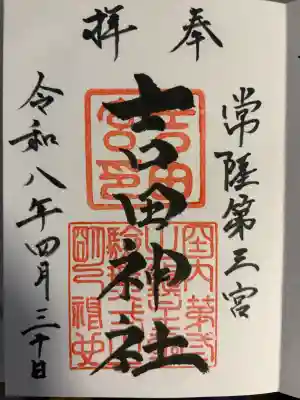 奉拝
常陸第三宮
吉田神社
令和八年四月三十日